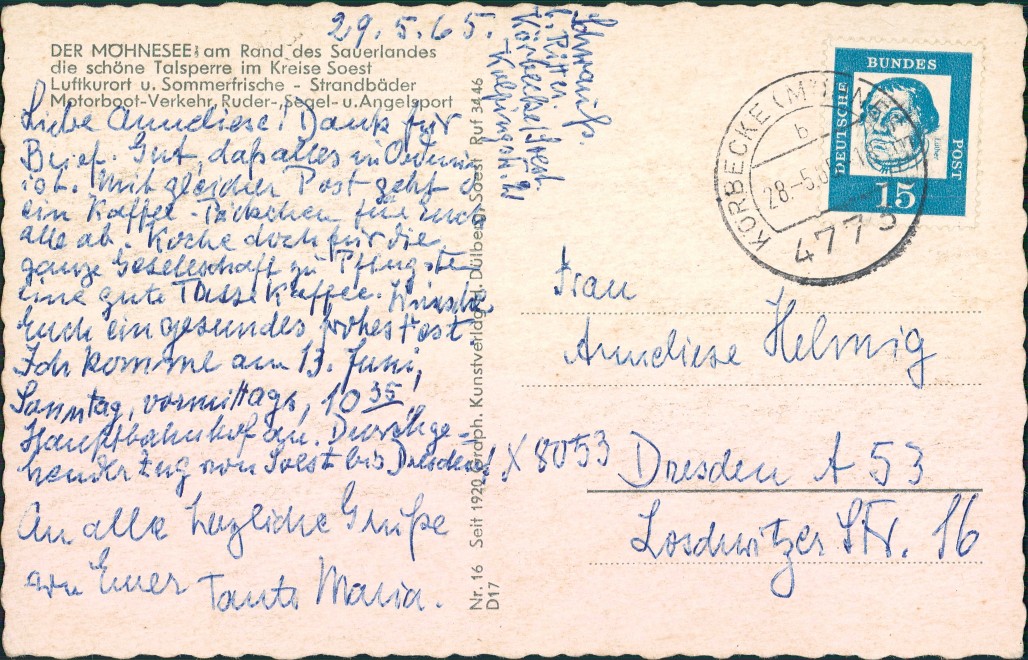 29.5.65.
DER MÖHNESEE: am Rand des Sauerlandes
die schöne Talsperre im Kreise Soest
Luftkurort u. Sommerfrische - Strandbäder
Motorboot-Verkehr, Ruder-, Segel- u. Angelsport
Liebe Anneliese! Dank für
Brief. Gut, daß alles in Ordnung
ist. Mit gleicher Post geht
ein Kaffee-Päckchen für Euch
alle ab. Koche doch für die
ganze Gesellschaft zu Pfingsten
eine gute Tasse Kaffee. Wünsche
Euch ein gesundes, frohes Fest
Ich komme am 13. Juni,
Sonntag, vormittags, 10 35
Hauptbahnhof an. Durchge-
hender Zug von Soest bis Dresden!
An alle herzliche Grüße
von Euer Tante Maria.
b. Ritter
Körbecke/Soest
Nr. 16 Seit 1920 Kunstverlag Dülberg, Soest Ruf 3446
D17
DEUTSCHE
BUNDES
POST
15
KÖRBECKE (MÖHNESEE)
b
28.-5.6
4773
Frau
Anneliese Helmig
X 8053 Dresden A 53
Loschwitzer Str. 16